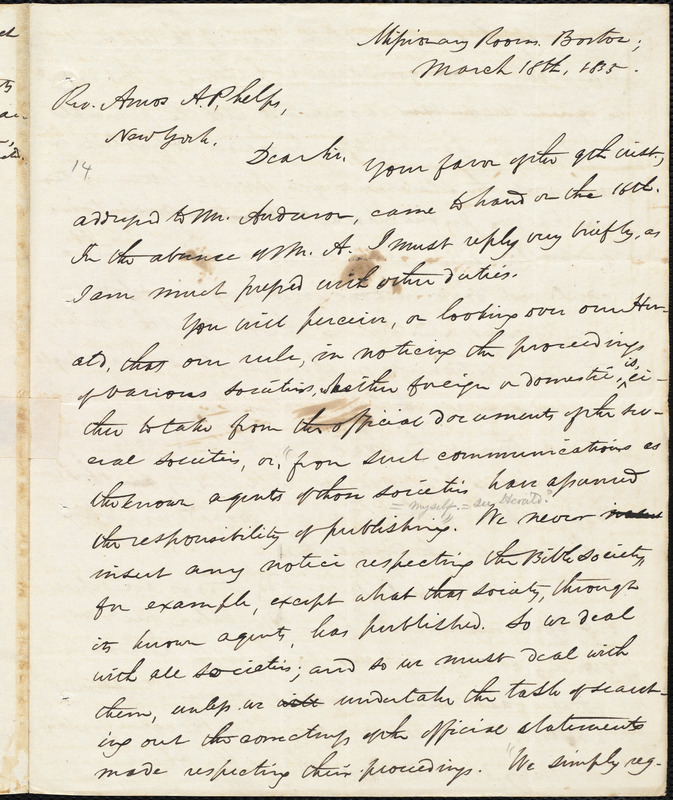 Missionary Rooms. Boston;
March 18th, 1835.
Rev. Amos A. Phelps,
New York.
14
Dear Sir. Your favor of the 9th inst.,
addressed to Mr. Anderson, came to hand on the 16th.
In the absence of Mr. A. I must reply very briefly, as
I am much pressed with other duties.
You will perceive, on looking over our Her-
ald, that our rule, in noticing the proceedings
of various societies, whether foreign or domestic, is, ei-
ther to take from the official documents of the sev-
eral societies, or, "from such communications as
the known agents of those societies have assumed
= myself. = see Herald?
the responsibility of publishing." We never
insert any notice respecting the Bible Society,
for example, except what that society, through
its known agents, has published. So we deal
with all societies; and so we must deal with
them, unless we undertake the task of search-
ing out the correctness of the official statements
made respecting their proceedings. "We simply reg-